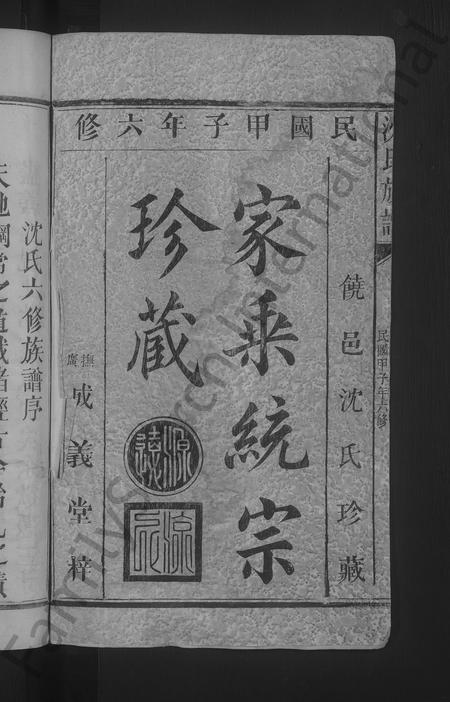 民國甲子年六修
沈氏族譜
民國甲子年六修
饒邑沈氏珍藏
家乘統宗
珍藏
源遠
流長
撫廣成義堂梓
沈氏六修族譜序
FamilySearch International